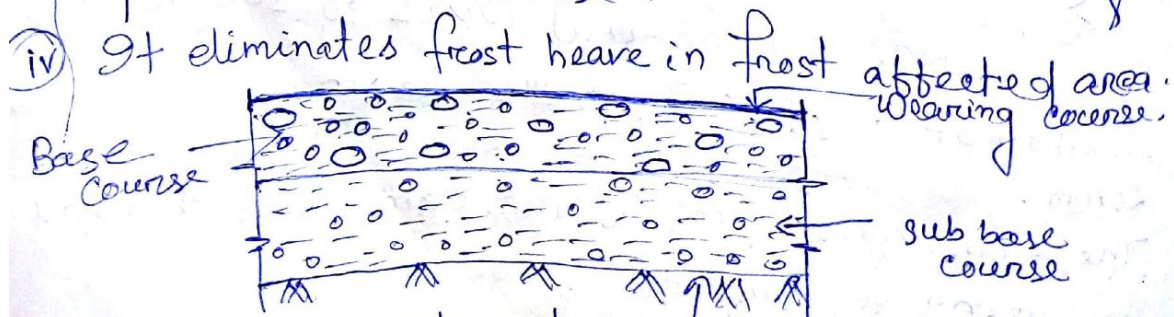 iv) It eliminates frost heave in frost affected area.
Wearing course.
Base
course
sub base
course